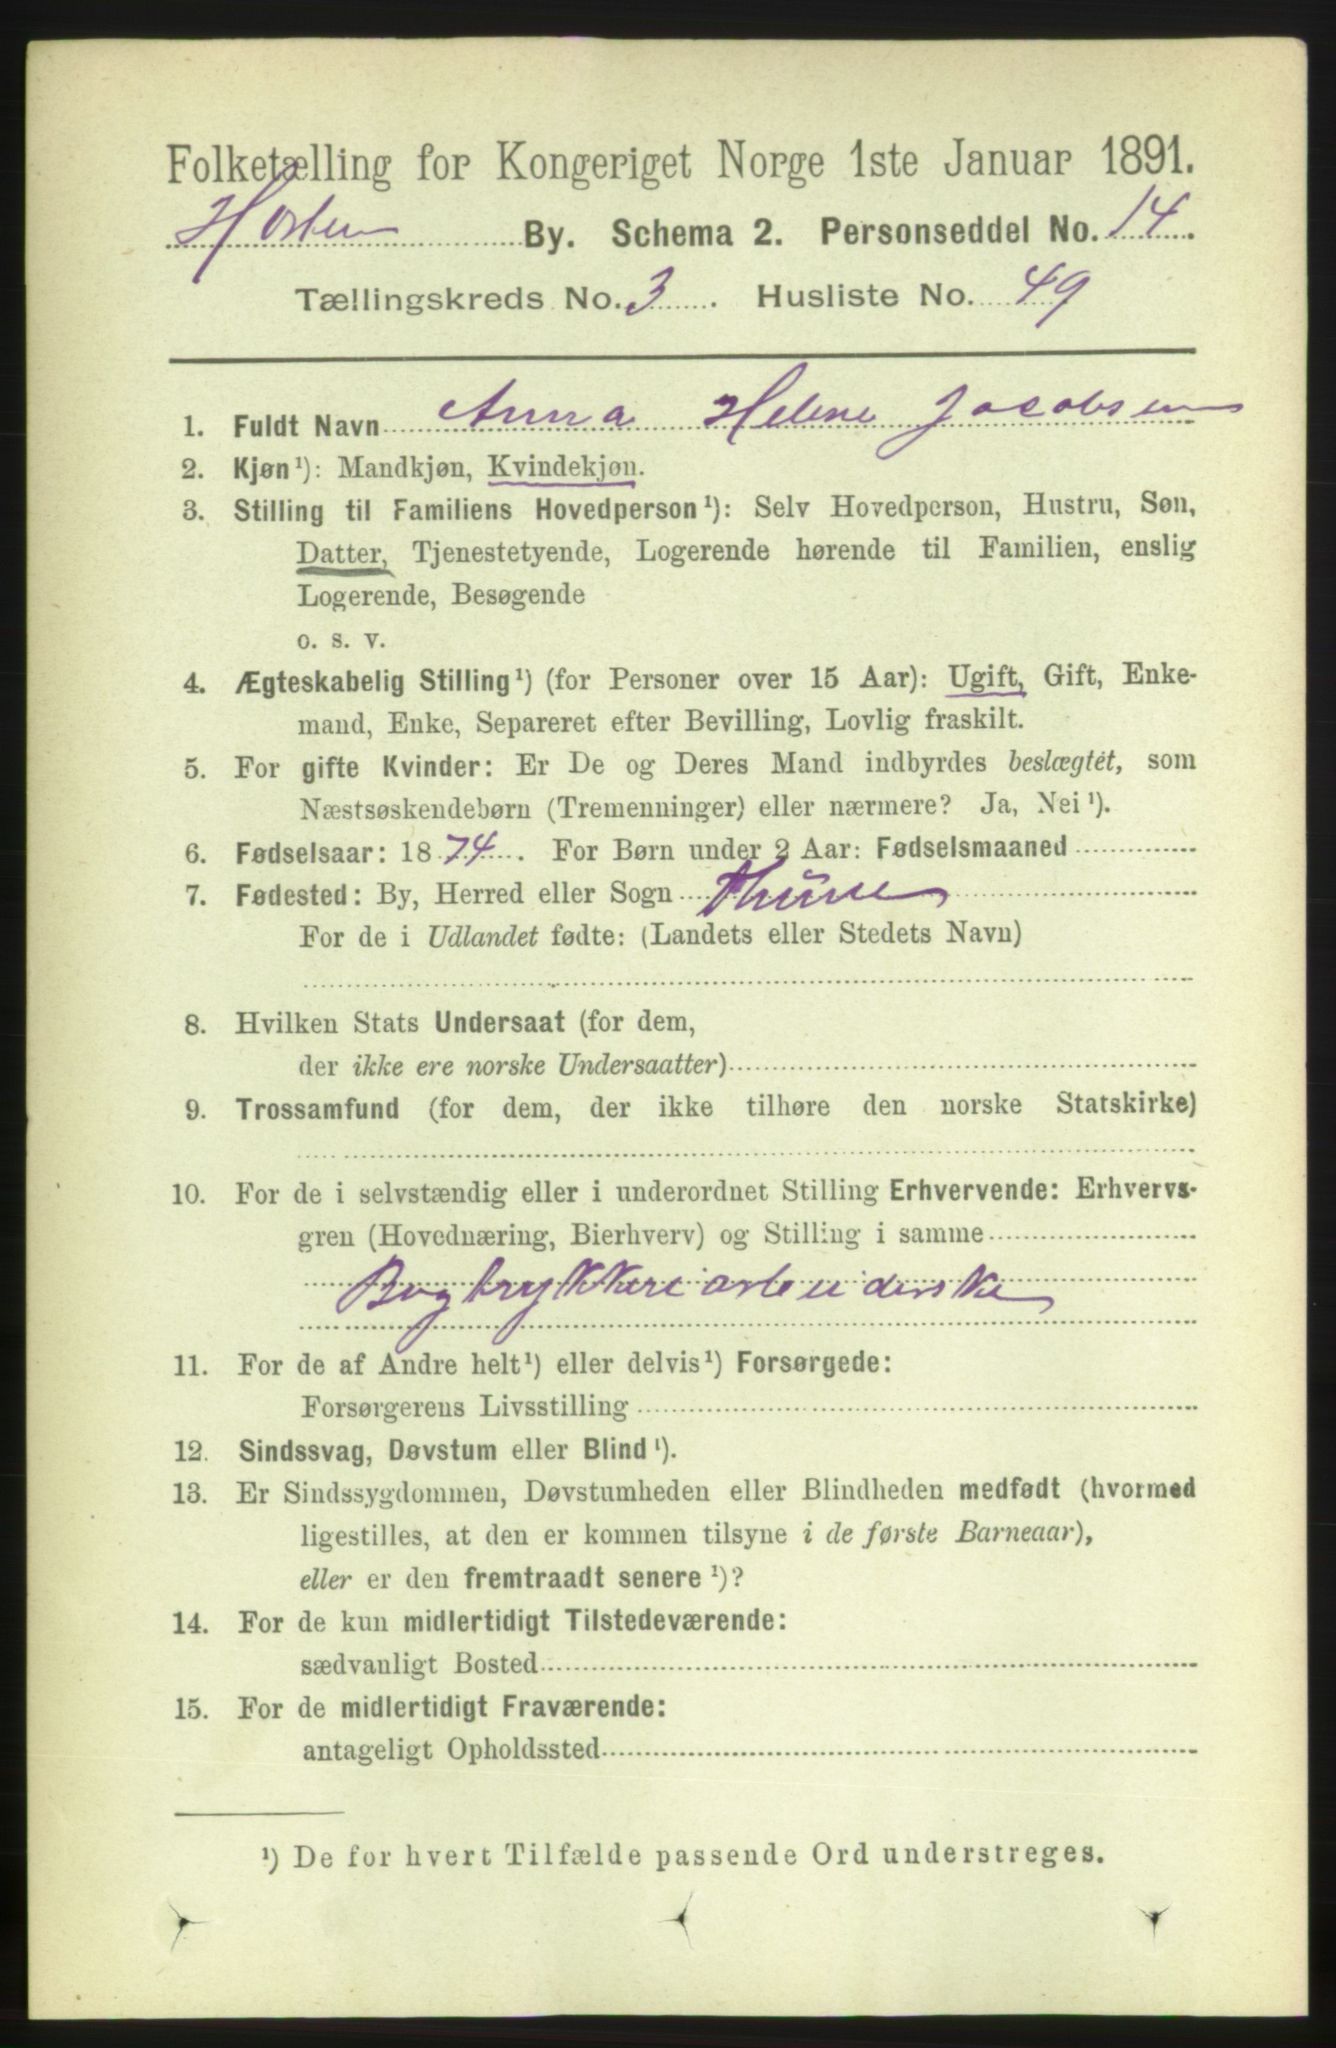 Folketælling for Kongeriget Norge 1ste Januar 1891.
Horten By. Schema 2. Personseddel No. 14.
Tællingskreds No. 3. Husliste No. 49
1. Fuldt Navn Anna Helene Jacobsen
2. Kjøn¹): Mandkjøn, Kvindekjøn.
3. Stilling til Familiens Hovedperson¹): Selv Hovedperson, Hustru, Søn,
Datter, Tjenestetyende, Logerende hørende til Familien, enslig
Logerende, Besøgende
o. s. v.
4. Ægteskabelig Stilling¹) (for Personer over 15 Aar): Ugift, Gift, Enke-
mand, Enke, Separeret efter Bevilling, Lovlig fraskilt.
5. For gifte Kvinder: Er De og Deres Mand indbyrdes beslægtet, som
Næstsøskendebørn (Tremenninger) eller nærmere? Ja, Nei¹).
6. Fødselsaar: 1874. For Børn under 2 Aar: Fødselsmaaned
7. Fødested: By, Herred eller Sogn
For de i Udlandet fødte: (Landets eller Stedets Navn)
8. Hvilken Stats Undersaat (for dem,
der ikke ere norske Undersaatter)
9. Trossamfund (for dem, der ikke tilhøre den norske Statskirke)
10. For de i selvstændig eller i underordnet Stilling Erhvervende: Erhvervs-
gren (Hovednæring, Bierhverv) og Stilling i samme
Bogtrykkeriarbeiderske
11. For de af Andre helt¹) eller delvis¹) Forsørgede:
Forsørgerens Livsstilling
12. Sindssvag, Døvstum eller Blind¹).
13. Er Sindssygdommen, Døvstumheden eller Blindheden medfødt (hvormed
ligestilles, at den er kommen tilsyne i de første Barneaar),
eller er den fremtraadt senere¹)?
14. For de kun midlertidigt Tilstedeværende:
sædvanligt Bosted
15. For de midlertidigt Fraværende:
antageligt Opholdssted
¹) De for hvert Tilfælde passende Ord understreges.